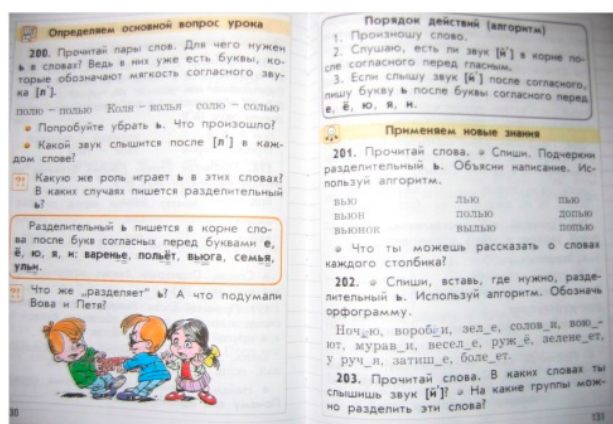 Определяем основной вопрос урока
200. Прочитай пары слов. Для чего нужен
ь в словах? Ведь в них уже есть буквы, ко-
торые обозначают мягкость согласного зву-
ка [л'].
полю – полью Коля – колья солю – солью
Попробуйте убрать ь. Что произошло?
Какой звук слышится после [л'] в каж-
дом слове?
?! Какую же роль играет ь в этих словах?
В каких случаях пишется разделительный
ь?
Разделительный ь пишется в корне сло-
ва после букв согласных перед буквами е,
ё, ю, я, и: варенье, польёт, вьюга, семья,
ульи.
?! Что же „разделяет“ ь? А что подумали
Вова и Петя?
30
Порядок действий (алгоритм)
1. Произношу слово.
2. Слушаю, есть ли звук [й'] в корне по-
сле согласного перед гласным.
3. Если слышу звук [й'] после согласного,
пишу букву ь после буквы согласного перед
е, ё, ю, я, и.
Применяем новые знания
201. Прочитай слова. Спиши. Подчеркни
разделительный ь. Объясни написание. Ис-
пользуй алгоритм.
вью лью пью
вьюн полью допью
вьюнок вылью попью
Что ты можешь рассказать о словах
каждого столбика?
202. Спиши, вставь, где нужно, разде-
лительный ь. Используй алгоритм. Обозначь
орфограмму.
Ноч_ю, вороб_и, зел_е, солов_и, вою_-
ют, мурав_и, весел_е, руж_ё, зелене_ет,
у руч_я, затиш_е, боле_ет.
203. Прочитай слова. В каких словах ты
слышишь звук [й']? На какие группы мож-
но разделить эти слова?
131